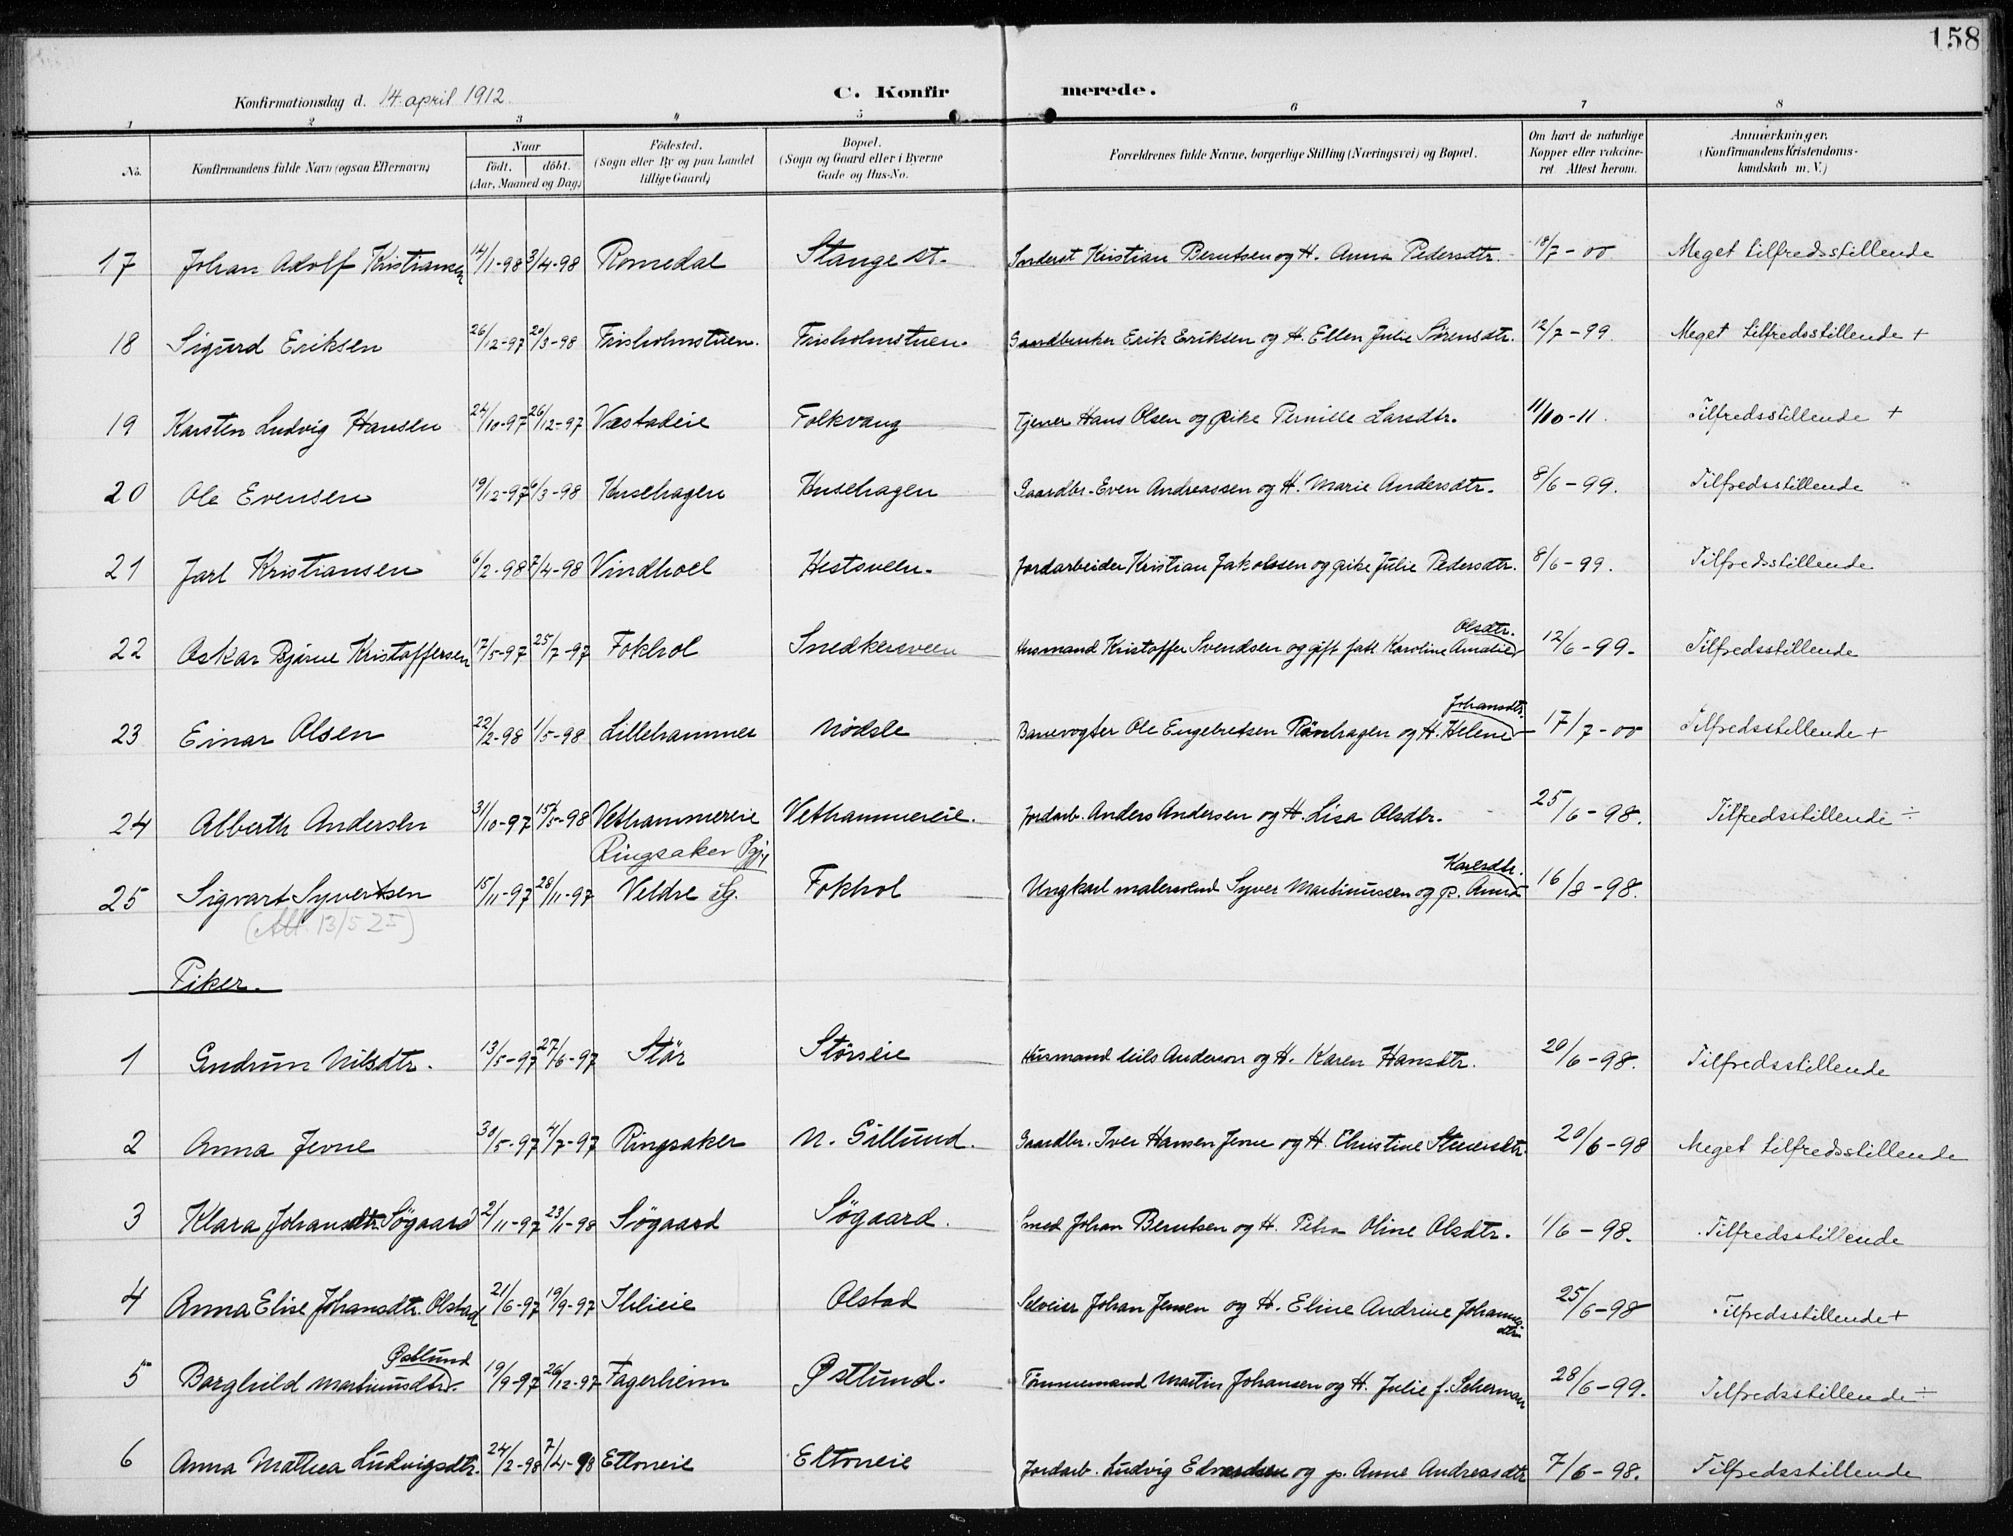 158
Konfirmationsdag d. 14. april 1912.
C. Konfirmerede.
1 2 3 4 5 6 7 8
No. Konfirmandens fulde Navn (ogsaa Efternavn) Naar født. døbt. (Aar, Maaned og Dag) Fødested. (Sogn eller By og paa Landet tillige Gaard) Bopæl. (Sogn og Gaard eller i Byerne Gade og Hus-No. Forældrenes fulde Navne, borgerlige Stilling (Næringsvei) og Bopæl. Om havt de naturlige Kopper eller vaccineret Attest herom. Anmærkninger. (Konfirmandens Kristendomskundskab m. V.)
17 Johan Adolf Kristiansen 14/1-98 3/4-98 Romedal Stange st. Kristian Berntsen og H. Anna Pedersdtr. 18/7-00 Meget tilfredsstillende
18 Sigurd Eriksen 26/12-97 20/3-98 Frisholmstuen. Frisholmstuen. Gaardbruker Erik Eriksen og H. Ellen Julie Sørensdtr. 12/7-99. Meget tilfredsstillende +
19 Karsten Ludvig Hansen 24/10-97 26/12-97 Væstadeie Folkvang Tjener Hans Olsen og pike Pernille Larsdtr. 11/10-11. Tilfredsstillende +
20 Ole Evensen 19/12-97 6/3-98 Husehagen Husehagen Gaardbr. Even Andreassen og H. Marie Andersdtr. 8/6-99. Tilfredsstillende
21 Jarl Kristiansen 6/2-98 7/4-98 Vindhoel Hestsveen. Jordarbeider Kristian Jakobsen og pike Julie Pedersdtr. 8/6-99. Tilfredsstillende
22 Oskar Bjarne Kristoffersen 17/5-97 25/7-97 Fokhol Snedkersveen Husmand Kristoffer Svendsen og gift fatt. Karoline Amalie Olsdtr. 12/6-99. Tilfredsstillende
23 Einar Olsen 22/2-98 1/5-98 Lillehammer Nødsle Banevogter Ole Engebretsen og H. Helene Johansdtr. 17/7-00 Tilfredsstillende +
24 Alberth Andersen 31/10-97 15/5-98 Vethammereie Vethammereie. Jordarb. Anders Andersen og H. Lisa Olsdtr. 25/6-98. Tilfredsstillende ÷
25 Sigvart Syvertsen 15/11-97 28/11-97 Ringsaker Pgj. Veldre sg. Fokhol Ungkarl malersvend Syver Martinussen og p. Anna Karlsdtr. 16/8-98.
(Att. 13/5 25)
Piker.
1 Gudrun Nilsdtr. 13/5-97 27/6-97 Stør Størseie Husmand Nils Anderson og H. Karen Hansdtr. 20/6-98. Tilfredsstillende
2 Anna Jevne 30/5-97 4/7-97 Ringsaker N. Gillund. Gaardbr. Iver Hansen Jevne og H. Christine 20/6-98 Meget tilfredsstillende
3 Klara Johansdtr. Søgaard 2/11-97 23/1-98 Søgaard Søgaard. Smed Johan Berntsen og H. Petra Oline Olsdtr. 1/6-98. Tilfredsstillende
4 Anna Elise Johansdtr. Olstad 21/6-97 19/9-97 Ihlieie Olstad Selveier Johan Jensen og H. Eline Andrine Johannesdtr. 25/6-98 Tilfredsstillende +
5 Borghild Martinusdtr. Østlund 19/9-97 26/12-97 Fagerheim Østlund. Tømmermand Martin Johansen og H. Julie f. Scherman 28/6-99. Tilfredsstillende ÷
6 Anna Mathea Ludvigsdtr. 24/2-98 7/4-98 Eltoneie Eltoneie Jordarb. Ludvig Edvardsen og p. Anne Andreasdtr 7/6-98. Tilfredsstillende